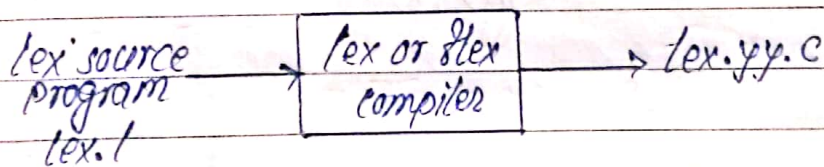 lex source
program
lex.l
lex or flex
compiler
lex.yy.c